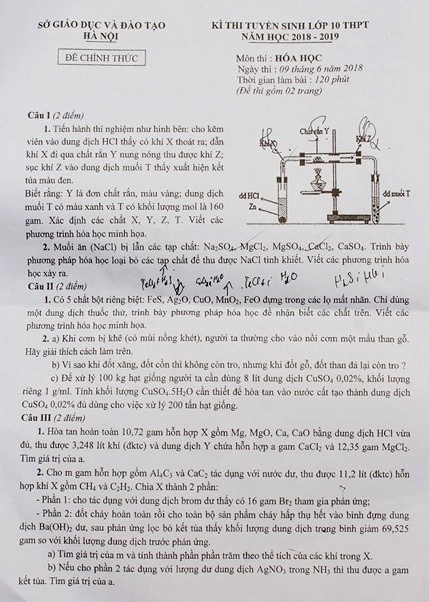 SỞ GIÁO DỤC VÀ ĐÀO TẠO
HÀ NỘI
ĐỀ CHÍNH THỨC
KÌ THI TUYỂN SINH LỚP 10 THPT
NĂM HỌC 2018 - 2019
Môn thi : HÓA HỌC
Ngày thi : 09 tháng 6 năm 2018
Thời gian làm bài : 120 phút
(Đề thi gồm 02 trang)
Câu I (2 điểm)
1. Tiến hành thí nghiệm như hình bên: cho kẽm
viên vào dung dịch HCl thấy có khí X thoát ra; dẫn
khí X đi qua chất rắn Y nung nóng thu được khí Z;
sục khí Z vào dung dịch muối T thấy xuất hiện kết
tủa màu đen.
Biết rằng: Y là đơn chất rắn, màu vàng; dung dịch
muối T có màu xanh và T có khối lượng mol là 160
gam. Xác định các chất X, Y, Z, T. Viết các
phương trình hóa học minh họa.
Chất rắn Y
Khí X
Khí Z
dd HCl
Zn
dd muối T
2. Muối ăn (NaCl) bị lẫn các tạp chất: Na₂SO₄, MgCl₂, MgSO₄, CaCl₂, CaSO₄. Trình bày
phương pháp hóa học loại bỏ các tạp chất để thu được NaCl tinh khiết. Viết các phương trình hóa
học xảy ra.
Câu II (2 điểm)
1. Có 5 chất bột riêng biệt: FeS, Ag₂O, CuO, MnO₂, FeO đựng trong các lọ mất nhãn. Chỉ dùng
một dung dịch thuốc thử, trình bày phương pháp hóa học để nhận biết các chất trên. Viết các
phương trình hóa học minh họa.
2. a) Khi cơm bị khê (có mùi nồng khét), người ta thường cho vào nồi cơm một mẩu than gỗ.
Hãy giải thích cách làm trên.
b) Vì sao khi đốt xăng, đốt cồn thì không còn tro, nhưng khi đốt gỗ, đốt than đá lại còn tro ?
c) Để xử lý 100 kg hạt giống người ta cần dùng 8 lít dung dịch CuSO₄ 0,02%, khối lượng
riêng 1 g/ml. Tính khối lượng CuSO₄.5H₂O cần thiết để hòa tan vào nước cất tạo thành dung dịch
CuSO₄ 0,02% đủ dùng cho việc xử lý 200 tấn hạt giống.
Câu III (2 điểm)
1. Hòa tan hoàn toàn 10,72 gam hỗn hợp X gồm Mg, MgO, Ca, CaO bằng dung dịch HCl vừa
đủ, thu được 3,248 lít khí (đktc) và dung dịch Y chứa hỗn hợp a gam CaCl₂ và 12,35 gam MgCl₂.
Tìm giá trị của a.
2. Cho m gam hỗn hợp gồm Al₄C₃ và CaC₂ tác dụng với nước dư, thu được 11,2 lít (đktc) hỗn
hợp khí X gồm CH₄ và C₂H₂. Chia X thành 2 phần:
- Phần 1: cho tác dụng với dung dịch brom dư thấy có 16 gam Br₂ tham gia phản ứng;
- Phần 2: đốt cháy hoàn toàn rồi cho toàn bộ sản phẩm cháy hấp thụ hết vào bình đựng dung
dịch Ba(OH)₂ dư, sau phản ứng lọc bỏ kết tủa thấy khối lượng dung dịch trong bình giảm 69,525
gam so với khối lượng dung dịch trước phản ứng.
a) Tìm giá trị của m và tính thành phần phần trăm theo thể tích của các khí trong X.
b) Nếu cho phần 2 tác dụng với lượng dư dung dịch AgNO₃ trong NH₃ thì thu được a gam
kết tủa. Tìm giá trị của a.